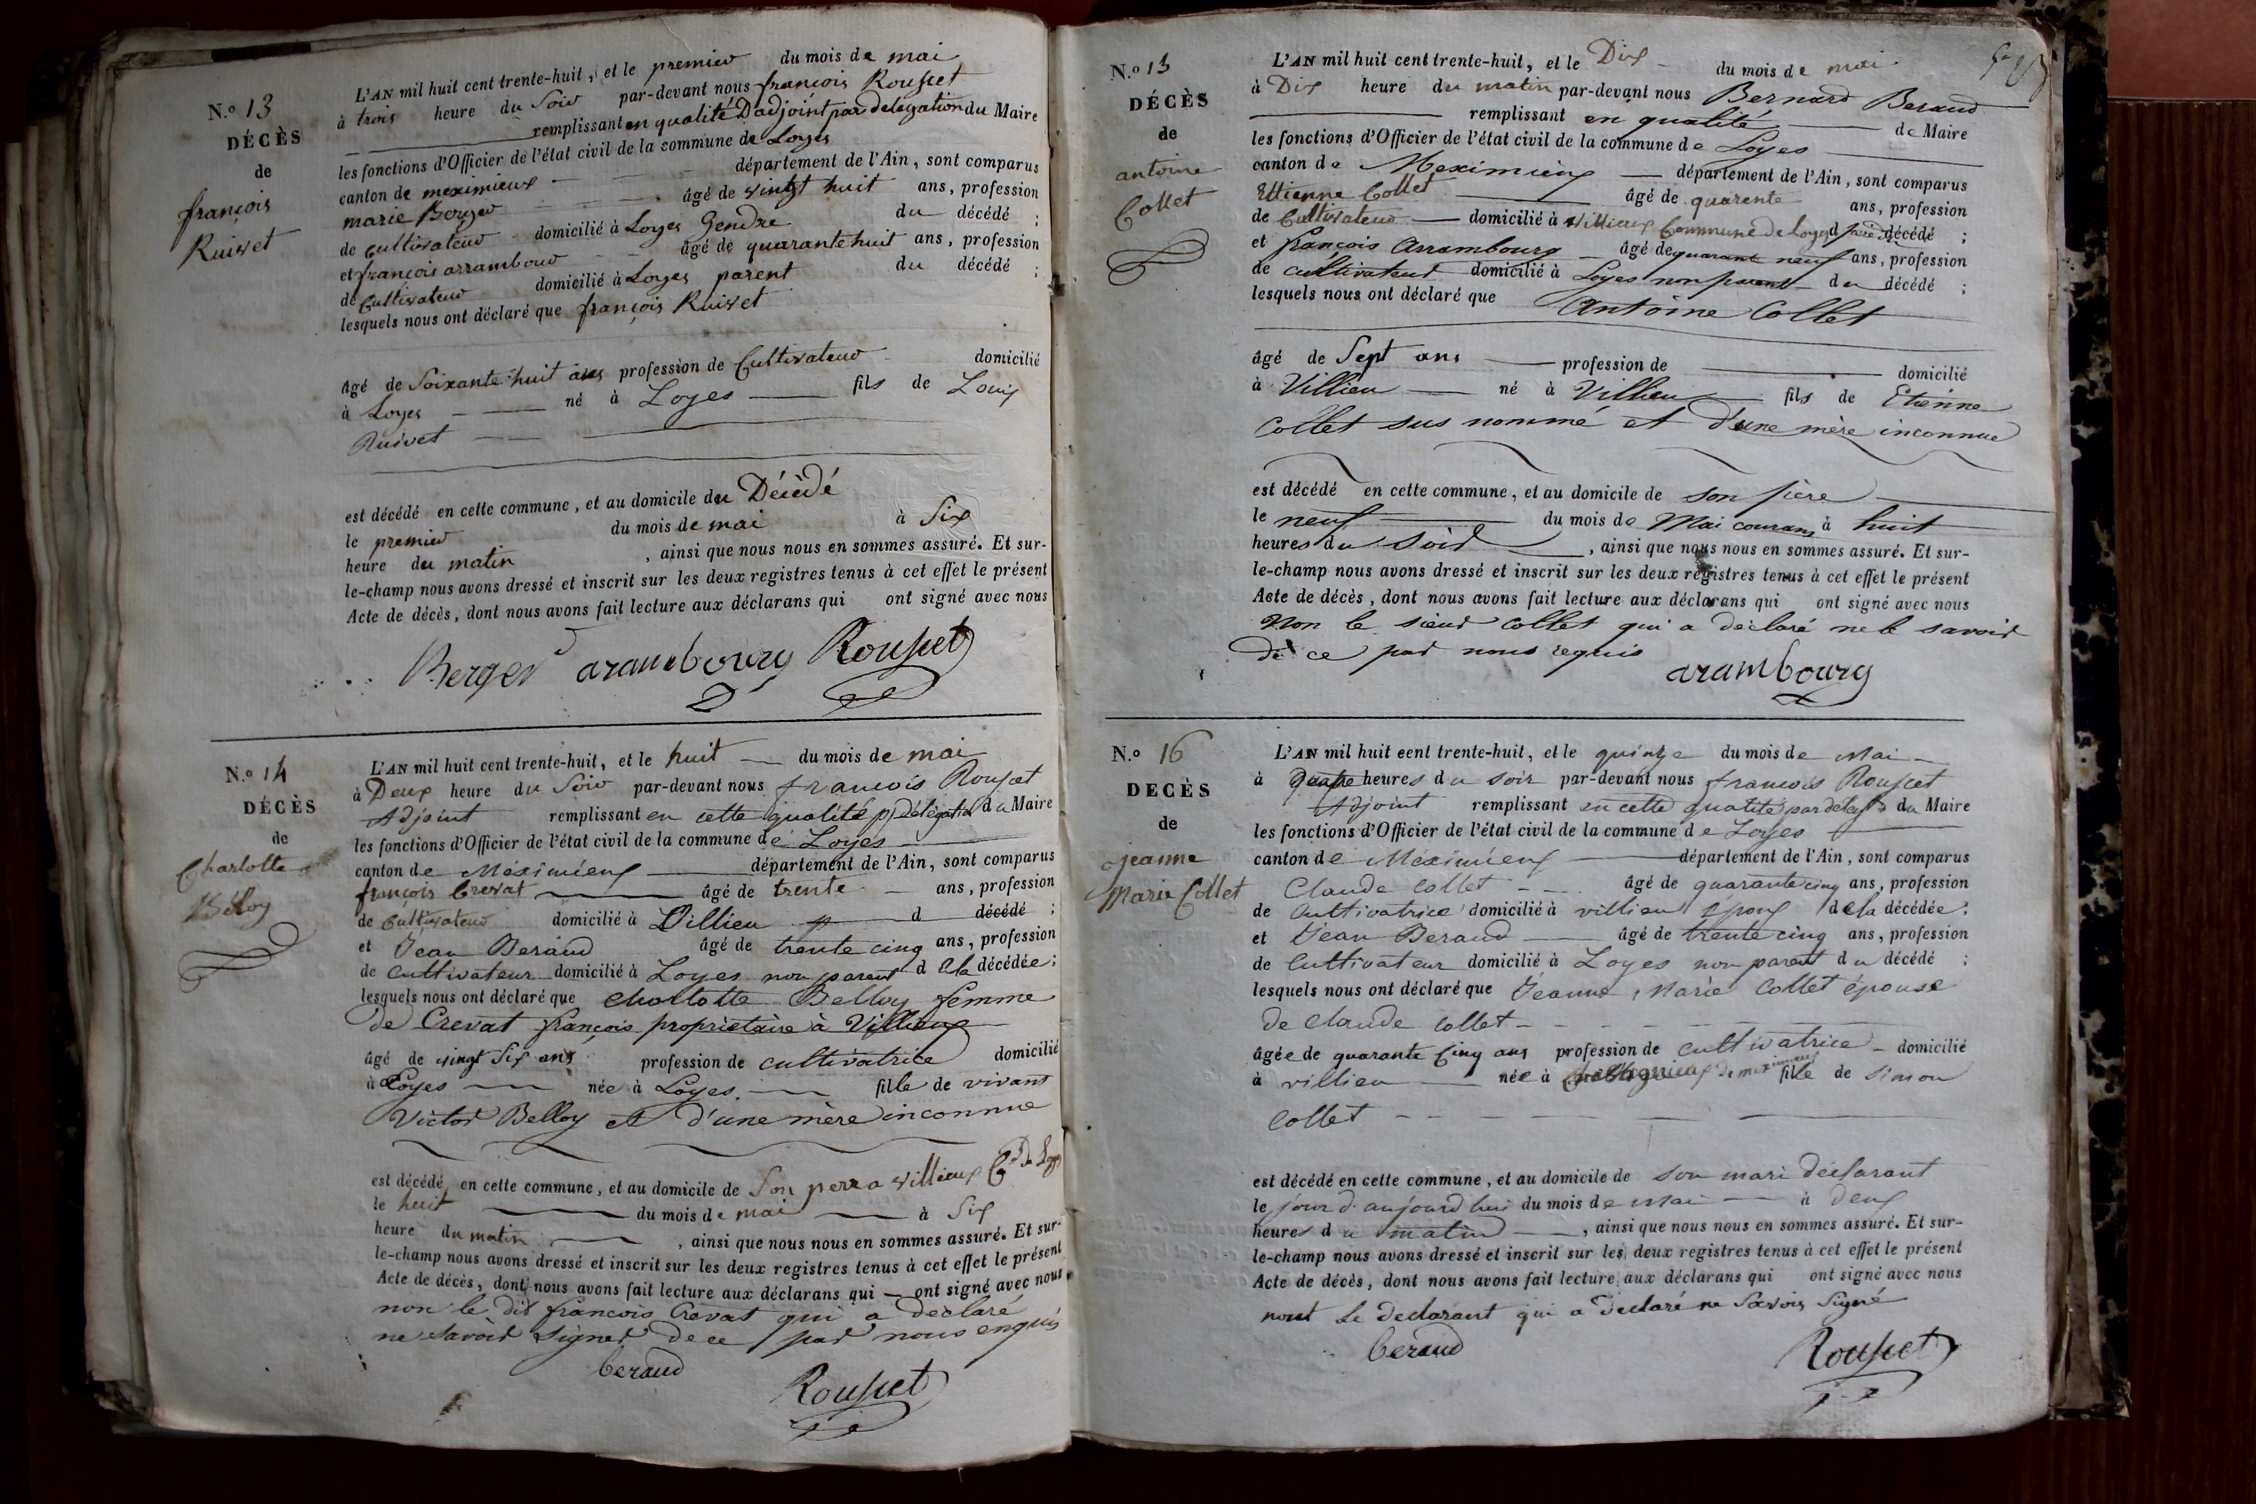 N.o 13
DÉCÈS
de
françois
Ruivet
L'AN mil huit cent trente-huit, et le premier du mois de mai
à trois heure du Soir par-devant nous françois Rousset
remplissant en qualité Dadjoint par delegation du Maire
les fonctions d'Officier de l'état civil de la commune de Loyes
canton de meximieux département de l'Ain, sont comparus
marie Berger âgé de vingt huit ans, profession
de cultivateur domicilié à Loyes Gendre du décédé ;
et françois arrambour âgé de quarante huit ans, profession
de Cultivateur domicilié à Loyes parent du décédé ;
lesquels nous ont déclaré que françois Ruivet
âgé de Soixante huit ans profession de Cultivateur domicilié
à Loyes né à Loyes fils de Louis
Ruivet
est décédé en cette commune, et au domicile du Décèdé
le premier du mois de mai à Six
heure du matin , ainsi que nous nous en sommes assuré. Et sur-
le-champ nous avons dressé et inscrit sur les deux registres tenus à cet effet le présent
Acte de décès, dont nous avons fait lecture aux déclarans qui ont signé avec nous
Berger arambourg Rousset
N.o 14
DÉCÈS
de
Charlotte
Béloy
L'AN mil huit cent trente-huit, et le huit du mois de mai
à Deux heure du Soir par-devant nous francois Rousset
Adjoint remplissant en cette qualité p délégation du Maire
les fonctions d'Officier de l'état civil de la commune de Loyes
canton de Méximieux département de l'Ain, sont comparus
françois Crevat âgé de trente ans, profession
de Cultivateur domicilié à Villieu d décédé ;
et Jean Beraud âgé de trente cinq ans, profession
de cultivateur domicilié à Loyes non parent d ela décédée ;
lesquels nous ont déclaré que charlotte Belloy femme
de Crevat françois propriétaire à Villieux
âgé de vingt Six ans profession de cultivatrice domicilié
à Loyes née à Loyes fille de vivant
Victor Belloy et d'une mère inconnue
est décédé en cette commune, et au domicile de Son perr a villieux Cne de Loyes
le huit du mois de mai à Six
heure du matin , ainsi que nous nous en sommes assuré. Et sur-
le-champ nous avons dressé et inscrit sur les deux registres tenus à cet effet le présent
Acte de décès, dont nous avons fait lecture aux déclarans qui ont signé avec nous
non le dit francois Crevat qui a declaré
ne savoir signer de ce par nous enquis
beraud
Rousset
N.o 15
DÉCÈS
de
antoine
Collet
L'AN mil huit cent trente-huit, et le Dix du mois de mai
à Dix heure du matin par-devant nous Bernard Beraud
remplissant en qualité de Maire
les fonctions d'Officier de l'état civil de la commune de Loyes
canton de Meximieux département de l'Ain, sont comparus
Ettienne Collet âgé de quarente ans, profession
de Cultivateur domicilié à villieux Commune de Loyes père du décédé ;
et françois Arrambourg âgé de quarant neuf ans, profession
de cultivateur domicilié à Loyes non parent du décédé ;
lesquels nous ont déclaré que Antoine Collet
âgé de Sept ans profession de domicilié
à Villieu né à Villieu fils de Etienne
Collet sus nommé et d'une mère inconnue
est décédé en cette commune, et au domicile de son père
le neuf du mois de Mai courant à huit
heures du soir , ainsi que nous nous en sommes assuré. Et sur-
le-champ nous avons dressé et inscrit sur les deux registres tenus à cet effet le présent
Acte de décès, dont nous avons fait lecture aux déclarans qui ont signé avec nous
Non le sieur Collet qui a déclaré ne le savoir
de ce par nous requis
arambourg
N.o 16
DECÈS
de
jeanne
Marie Collet
L'AN mil huit cent trente-huit, et le quinze du mois de Mai
à quatre heures du soir par-devant nous francois Rousset
Adjoint remplissant en cette qualité par delegon du Maire
les fonctions d'Officier de l'état civil de la commune de Loyes
canton de Méximieux département de l'Ain, sont comparus
Claude Collet âgé de quarante cinq ans, profession
de Cultivatrice domicilié à villieu époux dela décédée ;
et Jean Beraud âgé de trente cinq ans, profession
de Cultivateur domicilié à Loyes non parent du décédé ;
lesquels nous ont déclaré que Jeanne Marie Collet épouse
de Claude Collet
âgée de quarante Cinq ans profession de cultivatrice domicilié
à villieu née à de meximieux fille de Simon
Collet
est décédé en cette commune, et au domicile de son mari déclarant
le jour d'aujourd'hui du mois de Mai à deux
heures du matin , ainsi que nous nous en sommes assuré. Et sur-
le-champ nous avons dressé et inscrit sur les deux registres tenus à cet effet le présent
Acte de décès, dont nous avons fait lecture aux déclarans qui ont signé avec nous
nont le declarant qui a declaré ne Savoir Signé
beraud
Rousset